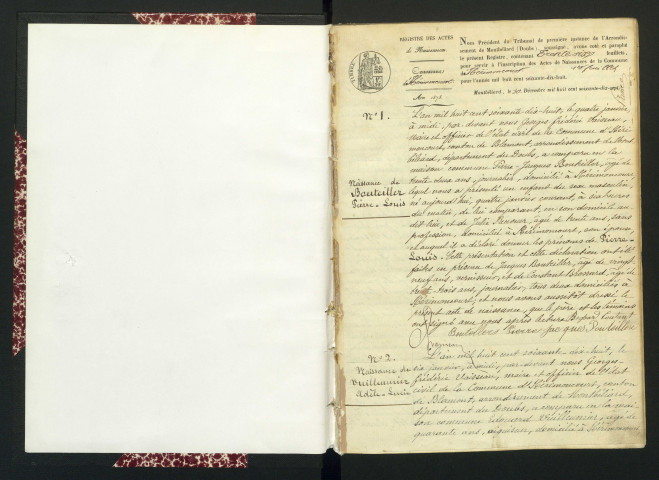 REGISTRE DES ACTES
de Naissance
Commune
d'Hérimoncourt
An 1878
Nous Président du Tribunal de première instance de l'Arrondis-
sement de Montbéliard (Doubs), soussigné, avons coté et paraphé
le présent Registre, contenant feuillets,
pour servir à l'inscription des Actes de Naissance de la Commune
d'Hérimoncourt
pour l'année mil huit cent soixante-dix-huit.
Montbéliard, le Décembre mil huit cent soixante-dix-sept.
N° 1.
Naissance de
Bouteiller
Pierre-Louis
L'an mil huit cent soixante-dix-huit, le quatre janvier,
à midi, par devant nous Georges frédéric
maire et officier de l'état civil de la Commune d'Héri-
moncourt, canton de Blamont, arrondissement de Mont-
béliard, département du Doubs, a comparu en la
maison commune Pierre-Jacques Bouteiller, âgé de
trente deux ans, journalier, domicilié à Hérimoncourt,
lequel nous a présenté un enfant du sexe masculin,
né aujourd'hui, quatre janvier courant, à six heures
du matin, de lui comparant, en son domicile au
dit lieu, et de Julie âgée de trente ans, sans
profession, domiciliée à Hérimoncourt, son épouse,
et auquel il a déclaré donner les prénoms de Pierre-
Louis. Cette présentation et cette déclaration ont été
faites en présence de Jacques Bouteiller, âgé de vingt
neuf ans, vernisseur, et de Constant Brossard, âgé de
trente trois ans, journalier, tous deux domiciliés à
Hérimoncourt, et nous avons aussitôt dressé le
présent acte de naissance, que le père et les témoins
ont signé avec nous après lecture
Pierre Jacques Bouteiller
N° 2.
Naissance de
Vuilleumier
Adèle-Lucie
L'an mil huit cent soixante-dix-huit, le
six janvier, à midi, par-devant nous Georges-
frédéric maire et officier de l'état
civil de la Commune d'Hérimoncourt, canton
de Blamont, arrondissement de Montbéliard,
département du Doubs, a comparu en la mai-
son commune Edouard Vuilleumier, âgé de
quarante ans, domicilié à Hérimoncourt